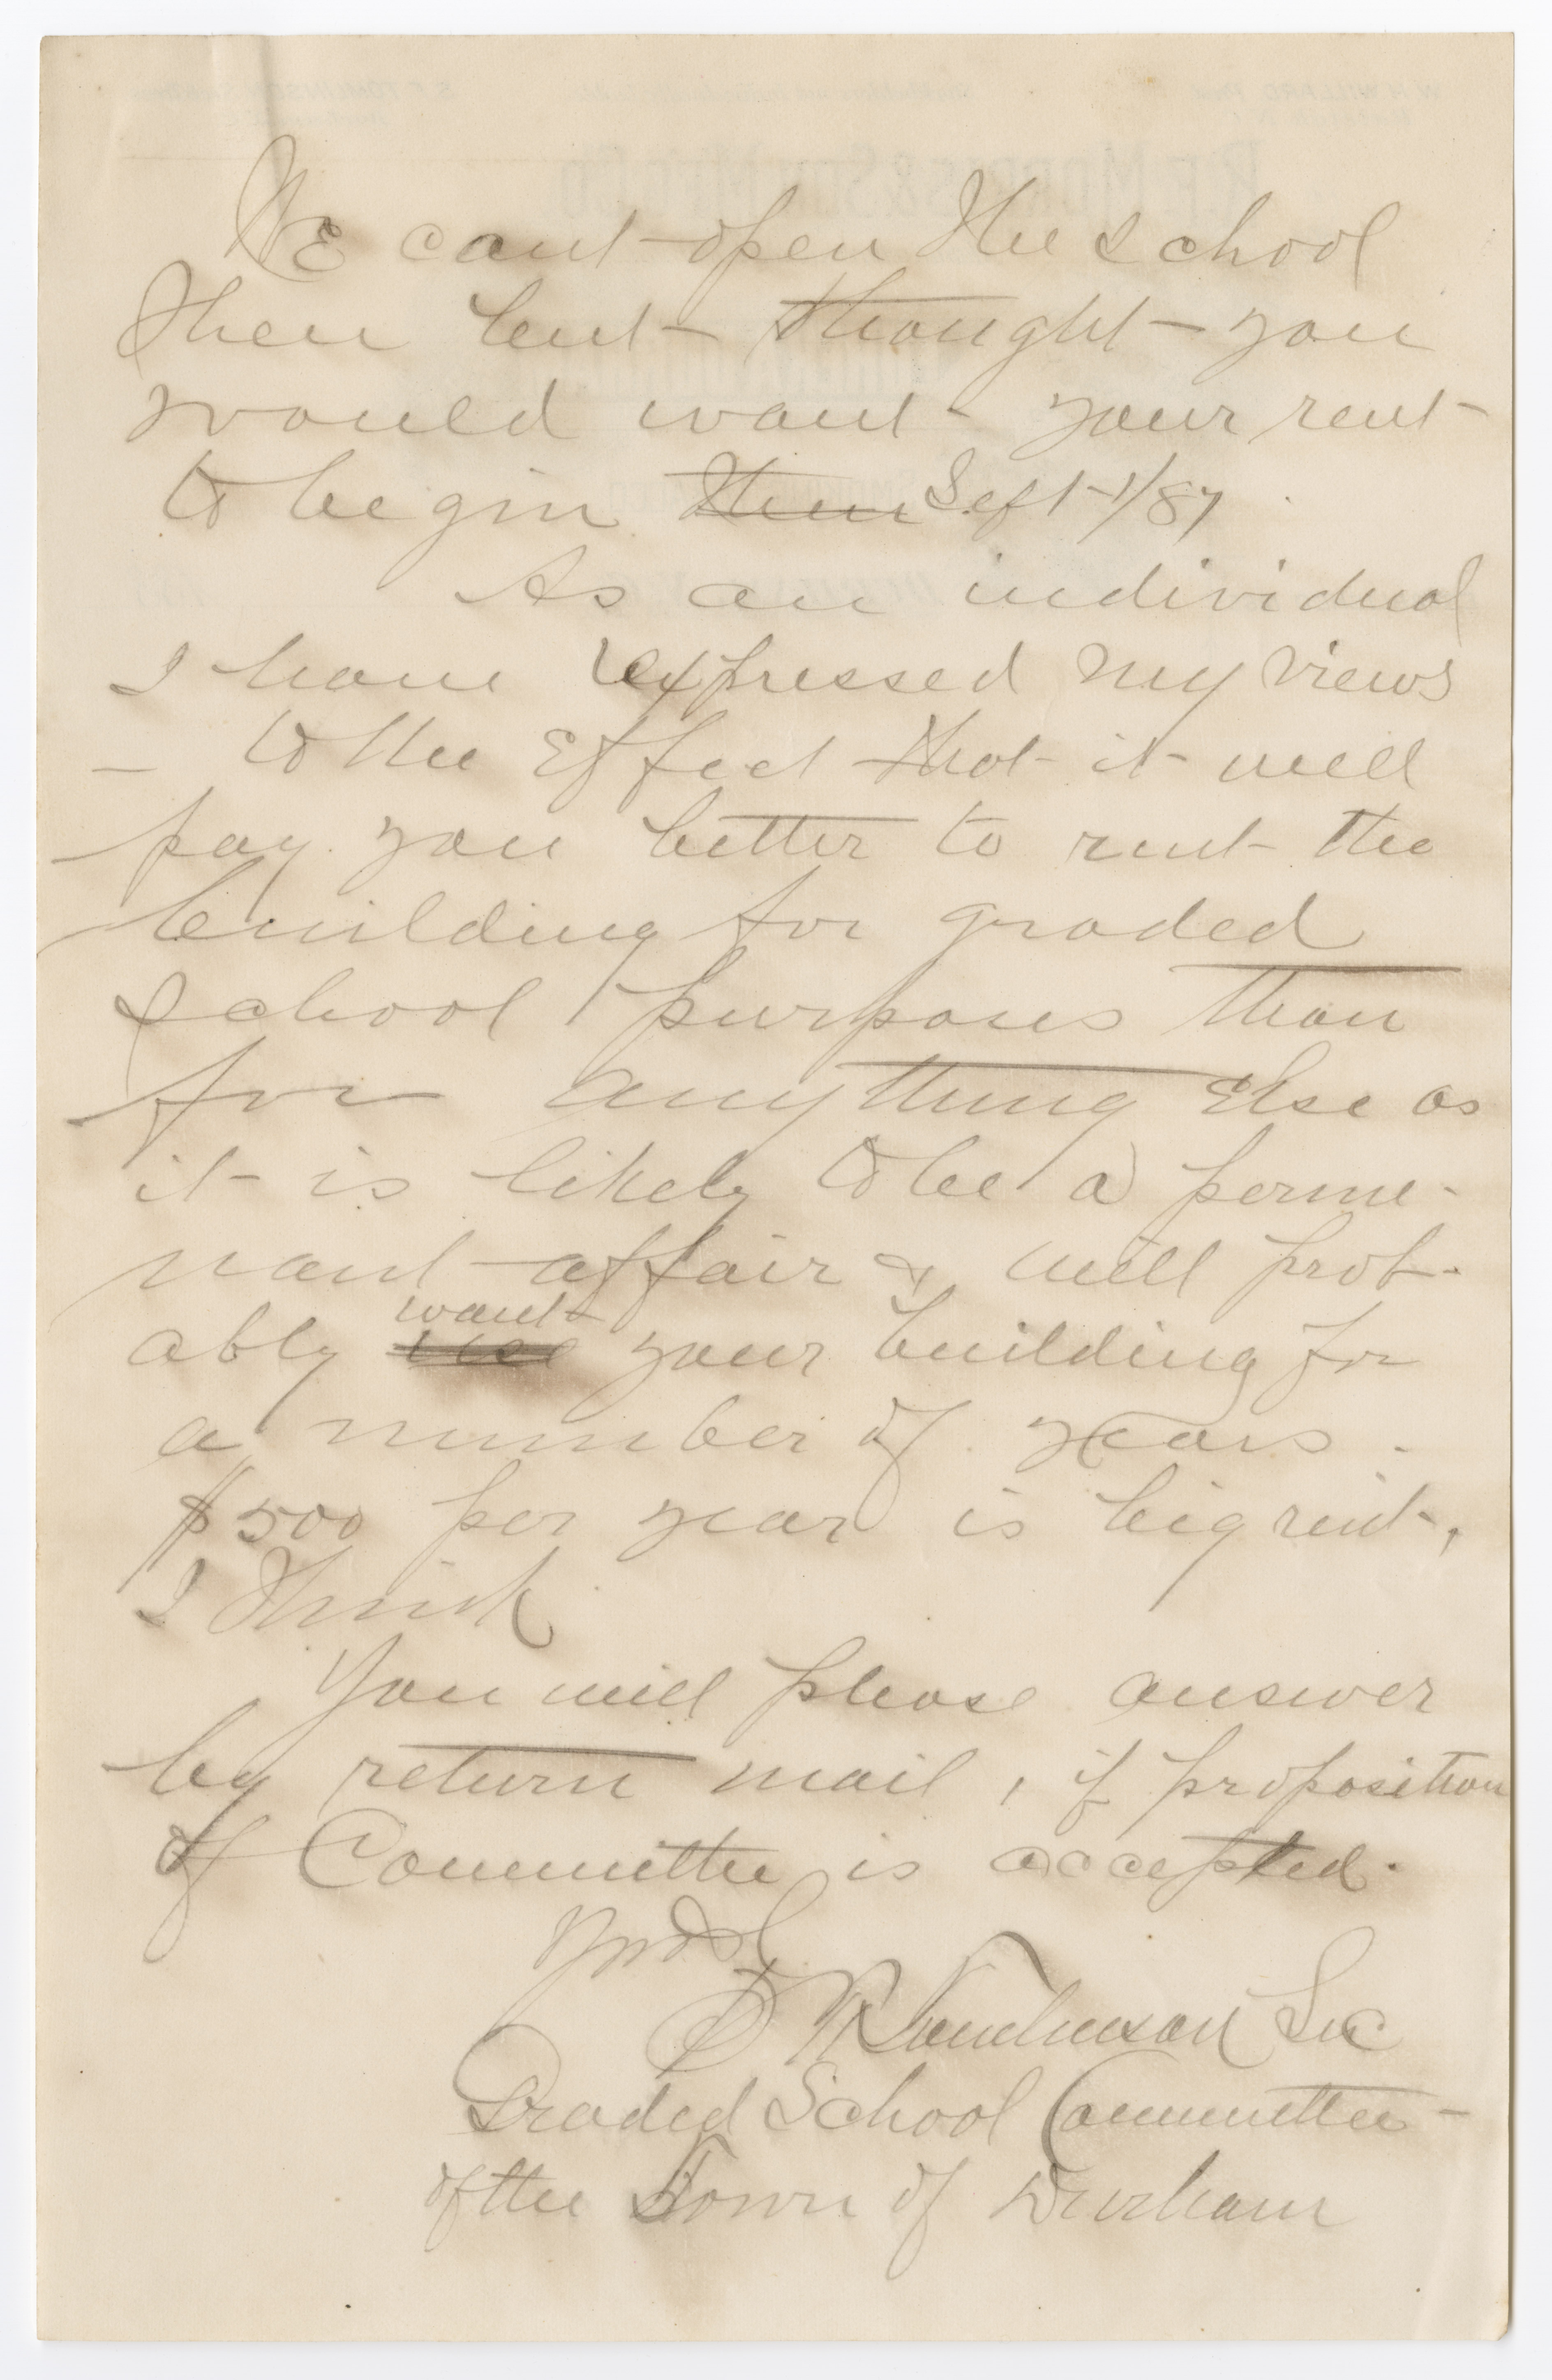 We cant open the school
then but thought you
would want your rent
to begin then Sept 1/87.
As an individual
I have expressed my views
to the Effect that it will
pay you better to rent the
building for graded
school purposes than
for anything Else as
it is likely to be a perme-
nant affair & will prob-
ably use want your building for
a number of years.
$500 per year is big rent,
I think
You will please answer
by return mail, if proposition
of Committee is accepted.
Tomlinson Sec
Graded School Committee
of the Town of Durham